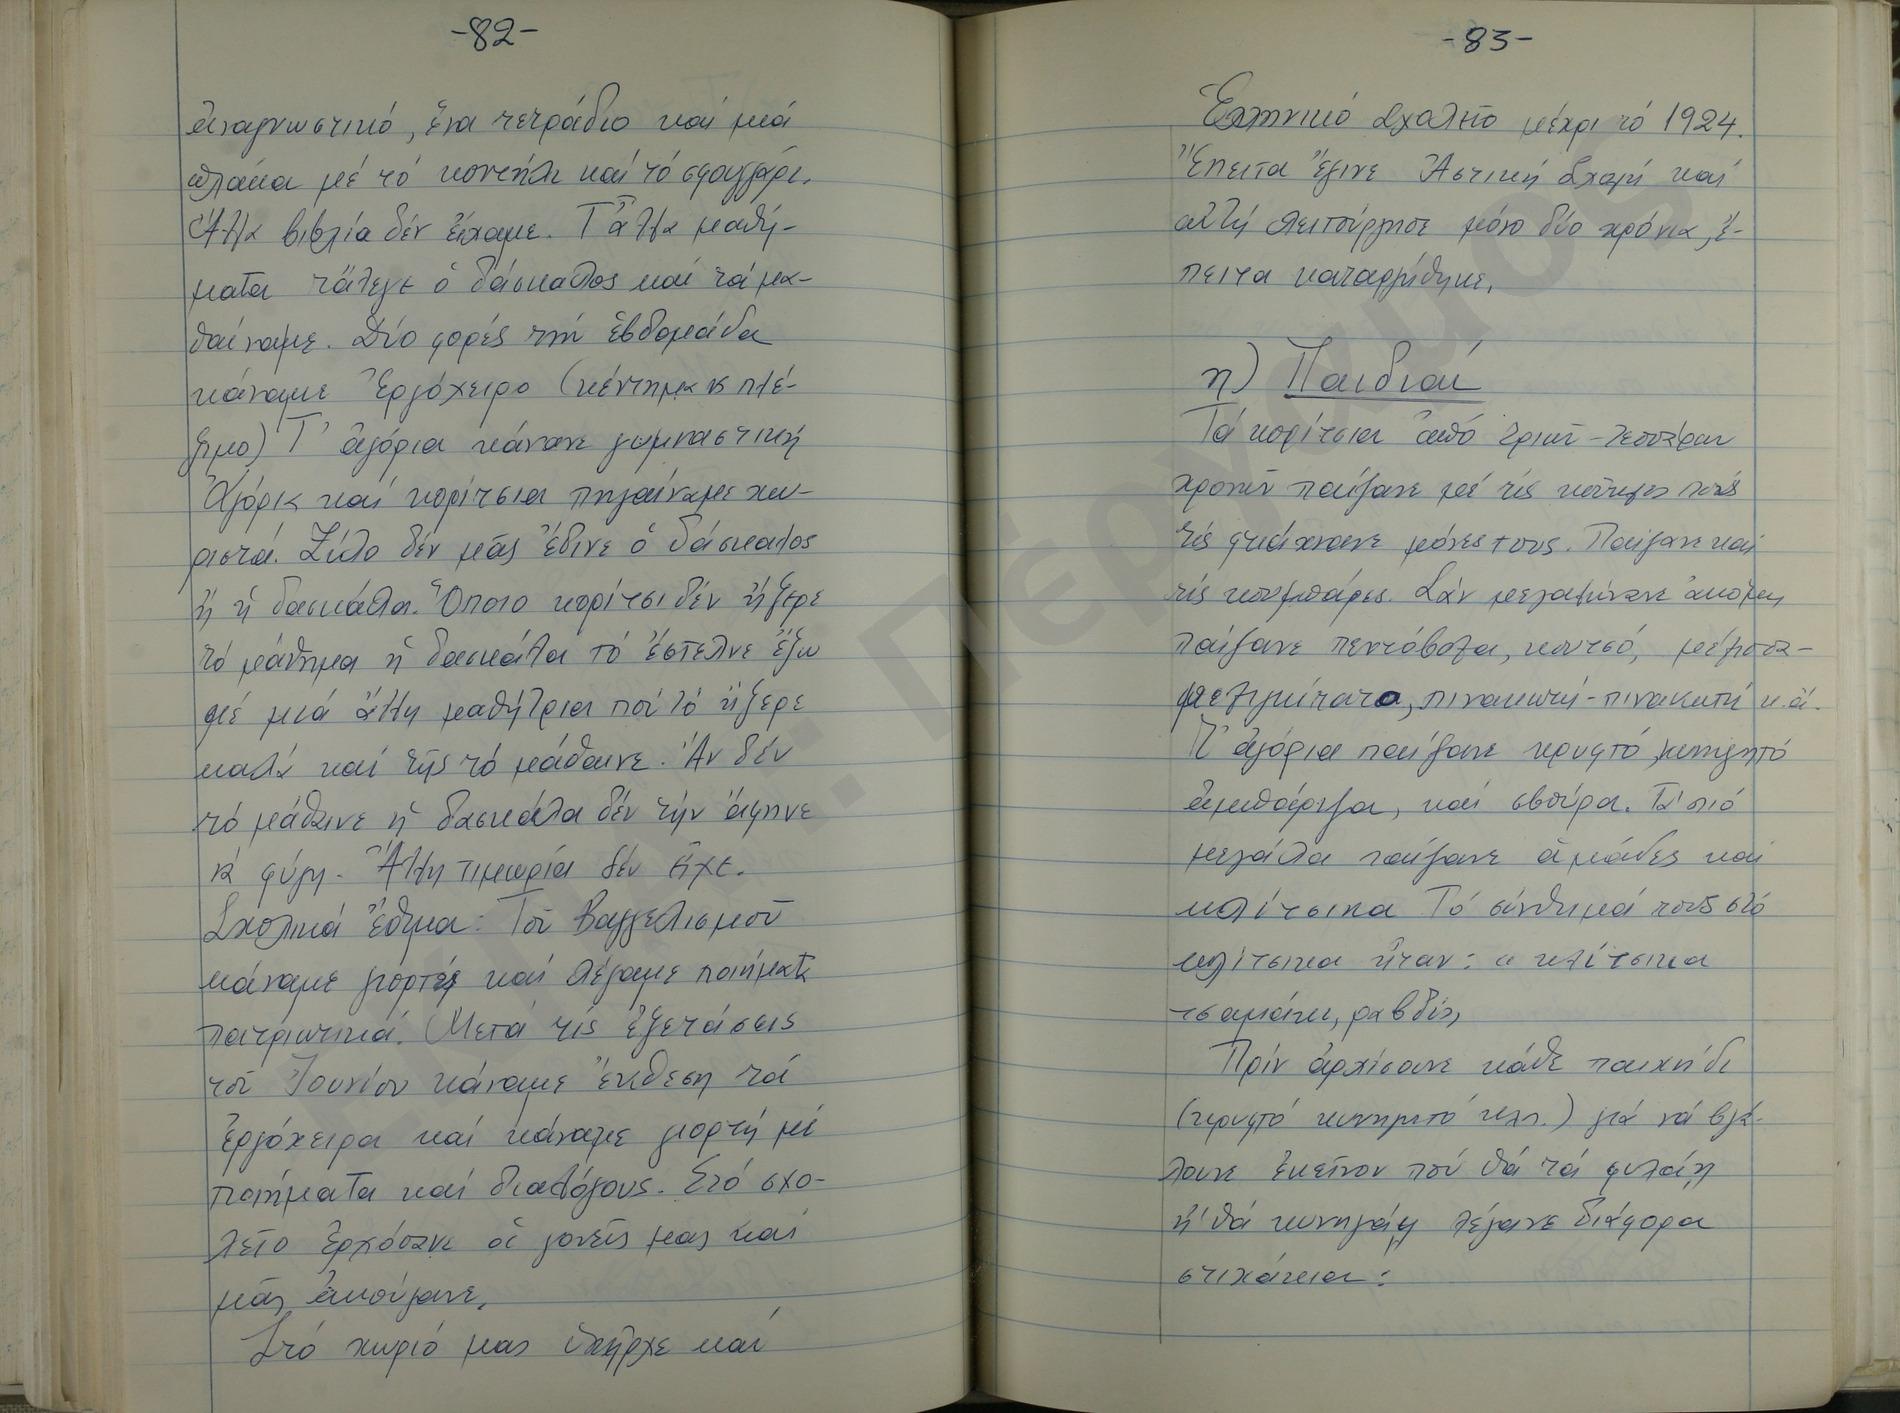 -82-
ἀναγνωστικό, ἕνα τετράδιο καί μιά
πλάκα μέ τό κοντήλι καί τό σφουγγάρι.
Ἄλλα βιβλία δέν εἴχαμε. Τἆλλα μαθή-
ματα τἄλεγε ὁ δάσκαλος καί τά μα-
θαίναμε. Δύο φορές τήν ἑβδομάδα
κάναμε Ἐργόχειρο (κέντημα κ πλέ-
ξιμο) Τ' ἀγόρια κάνανε γυμναστική
Ἀγόρια καί κορίτσια πηγαίναμε χω-
ριστά. Ξύλο δέν μᾶς ἔδινε ὁ δάσκαλος
ἤ ἡ δασκάλα. Ὅποιο κορίτσι δέν ἤξερε
τό μάθημα ἡ δασκάλα τό ἔστελνε ἔξω
μέ μιά ἄλλη μαθήτρια πού τό ἤξερε
καλά καί τῆς τό μάθαινε. Ἄν δέν
τό μάθαινε ἡ δασκάλα δέν τήν ἄφηνε
νά φύγη. Ἄλλη τιμωρία δέν εἶχε.
Σχολικά ἔθιμα: Τοῦ Βαγγελισμοῦ
κάναμε γιορτές καί λέγαμε ποιήματα
πατριωτικά. Μετά τίς ἐξετάσεις
τοῦ Ἰουνίου κάναμε ἔκθεση τά
ἐργόχειρα καί κάναμε γιορτή μέ
ποιήματα καί διαλόγους. Στό σχο-
λεῖο ἐρχόσανε οἱ γονεῖς μας καί
μᾶς ἀκούγανε.
Στό χωριό μας ὑπῆρχε καί
-83-
Ἑλληνικό Σχολεῖο μέχρι τό 1924.
Ἔπειτα ἔγινε Ἀστική Σχολή καί
αὐτή λειτούργησε μόνο δύο χρόνια, ἔ-
πειτα καταργήθηκε.
η) Παιδιαί
Τά κορίτσια ἀπό τριῶν-τεσσάρων
χρονῶν παίζανε μέ τίς κοῦκλες πού
τίς φτιάχνανε μόνες τους. Παίζανε καί
τίς κουμπάρες. Σάν μεγαλώνανε ἀκόμη
παίζανε πεντόβολα, κουτσό,
πινακωτή-πινακωτή κ.ἄ.
Τ' ἀγόρια παίζανε κρυφτό, κυνηγητό
ἀμπάριζα, καί σβούρα. Τά πιό
μεγάλα παίζανε ἀμάδες καί
κλίτσικα Τό σύνθημά τους στό
κλίτσικα ἦταν: « κλίτσικα
τσομάκα, ραβδίν
Πρίν ἀρχίσουνε κάθε παιχνίδι
(κρυφτό κυνηγητό κλπ.) γιά νά βγά-
λουνε ἐκεῖνον πού θά τά φυλάη
ἤ θά κυνηγάη λέγανε διάφορα
στιχάκια: